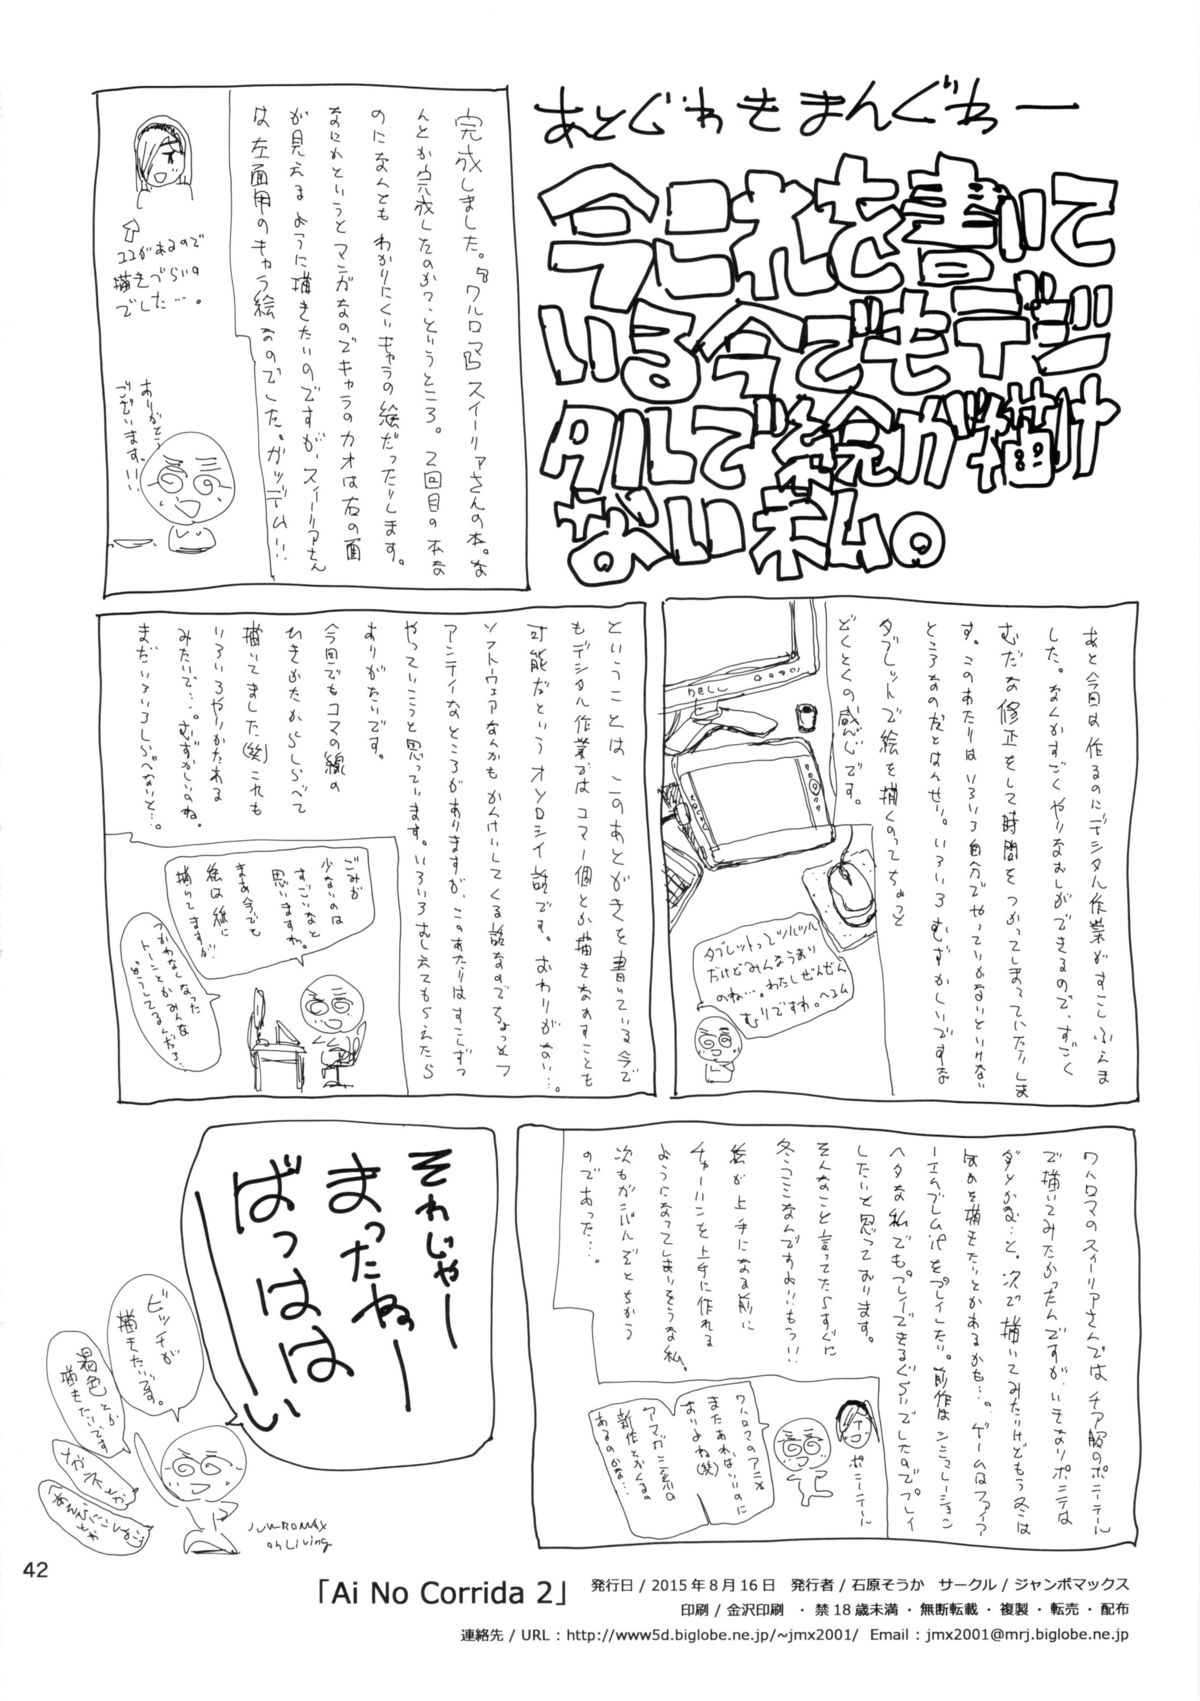 あとぐわきまんぐわー
今これを書いて
いる今でもデジ
タルで絵が描け
ない私。
完成しました。『ワルロマ』スイーリアさんの本。な
んとか完成したのかっ、というところ。2回目の本な
のになんともわかりにくいキャラの絵だったりします。
なにかというとマンガなのでキャラのカオは右の面
が見えるように描きたいのですが、スイーリアさん
は左面用のキャラ絵なのでした。ガッデム!!
ココがあるので
描きづらいの
でした…。
ありがとう
ございます!!
あと今回は作るのにデジタル作業がすこしふえま
した。なんかすごくやりなおしができるので、すごく
むだな修正をして時間をつかってしまっていたりしま
す。このあたりはいろいろ自分でやっていかないといけない
ところなのだとはんせい。いろいろむずかしいですな
タブレットで絵を描くのってちょっと
どくとくの感じです。
DELL
タブレットってツルツル
だけどみんなうまい
のね…。わたしぜんぜん
むりですわ。ヘユム
ということはこのあとがきを書いている今で
もデジタル作業ではコマ一個とか描きなおすことも
可能だというオソロシイ話です。おわりがない…。
ソフトウェアなんかもかんけいしてくる話なのでちょっとフ
アンテイなところがありますが、このあたりはすこしずつ
やっていこうと思っています。いろいろおしえてもらえたら
ありがたいです。
今回でもコマの線の
ひきかたからしらべて
描いてました(笑)これも
いろいろやりかたある
みたいで…。むずかしいのね。
まだいろいろしらべないと…。
ごみが
少ないのは
すごいなと
思いますね。
まあ今でも
絵は紙に
描いてますが…
つかわなくなった
トーンとかみんな
どうしてるんだろ…
ワルロマのスイーリアさんではチア服のポニーテール
で描いてみたかったんですが、いきなりポニテは
ダメかな…と。次で描いてみたいけどもう冬は
なのを描きたいとかあるかも…。ゲームはファイア
ーエムブレムifをプレイしたい。前作はシミュレーション
ヘタな私でもプレイできるぐらいでしたのでプレイ
したいと思っております。
そんなこと言ってたらすぐに
冬コミなんですよ!!もうっ!!
絵が上手になる前に
チャーハンを上手に作れる
ようになってしまいそうな私。
次もガンバルぞとちかう
のであった…。
ポニーテール
ワルロマのアニメ
またあればいいのに
おりよね(笑)
アマガミ系の
新作とかくるの
あるのかな…
それじゃー
まったねー
ばっははーい
ビッチが
描きたいです。
褐色とか
描きたいです
メガネとか
JUMBOMAX
on Living
42
「Ai No Corrida 2」
発行日 / 2015年8月16日　発行者 / 石原そうか　サークル / ジャンボマックス
印刷 / 金沢印刷　・禁18歳未満・無断転載・複製・転売・配布
連絡先 / URL : http://www5d.biglobe.ne.jp/~jmx2001/　Email : jmx2001@mrj.biglobe.ne.jp